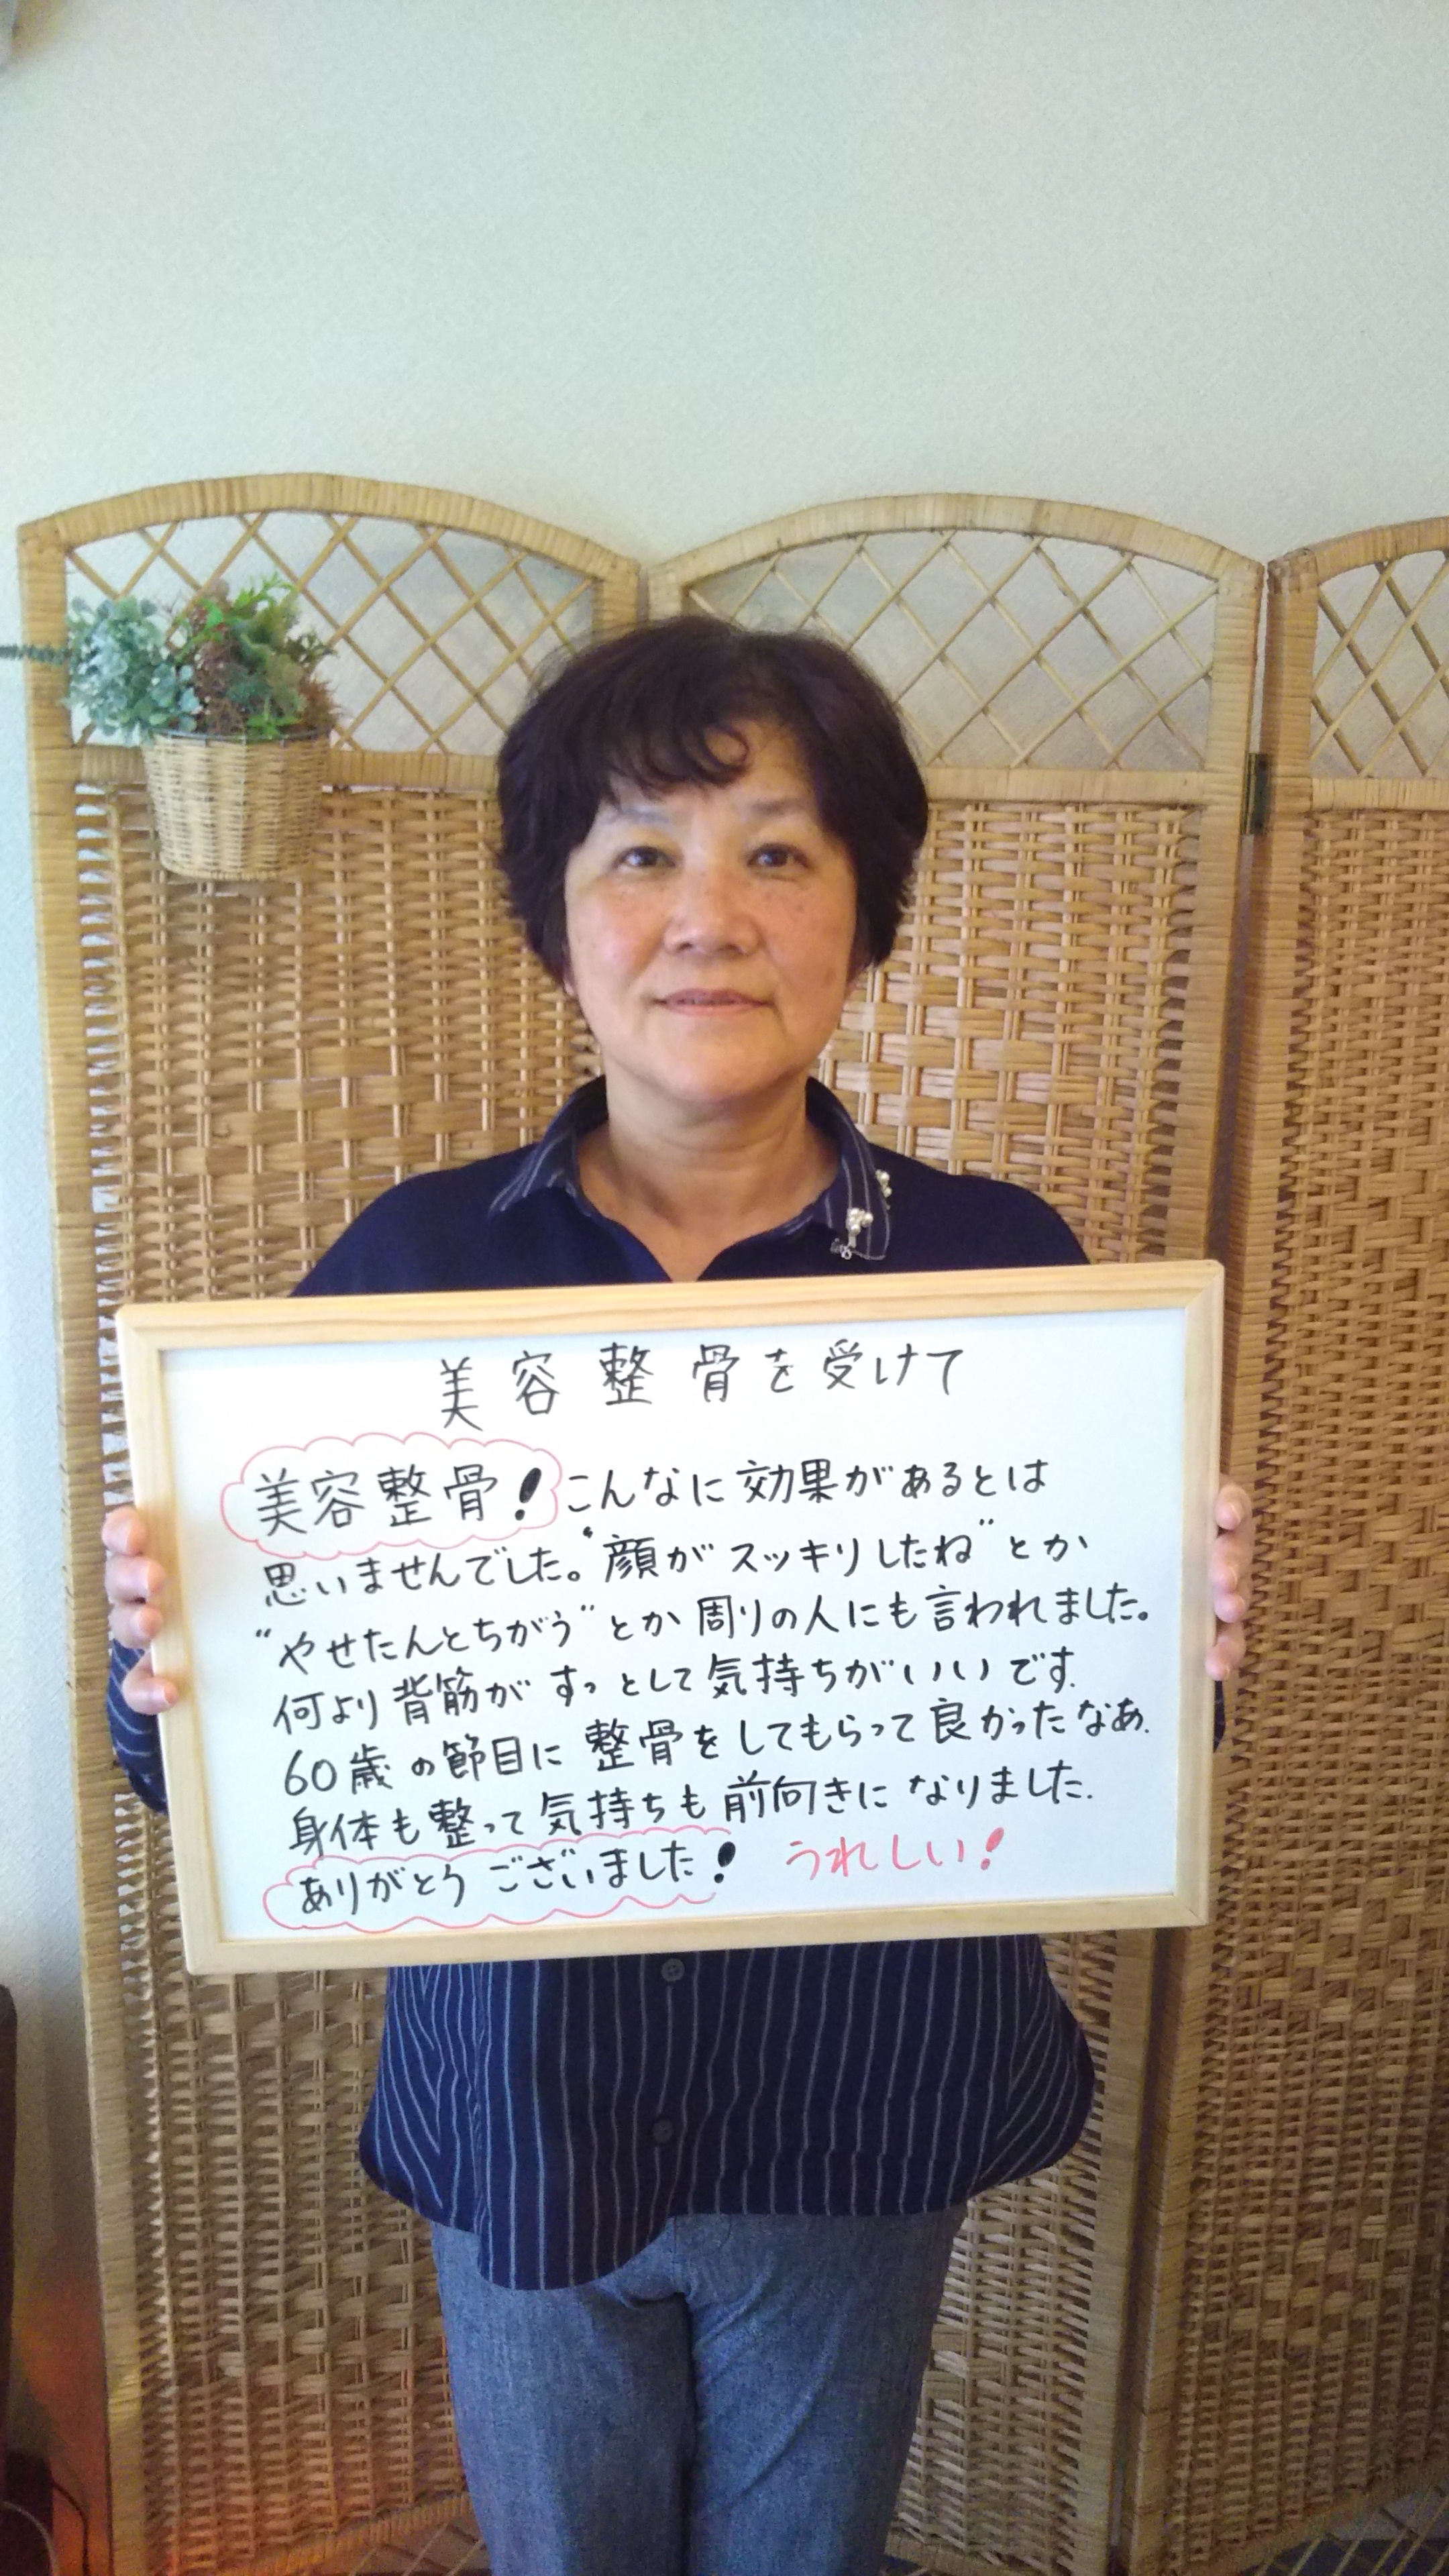 美容整骨を受けて
美容整骨！こんなに効果があるとは
思いませんでした。“顔がスッキリしたね”とか
“やせたんとちがう”とか周りの人にも言われました。
何より背筋がすっとして気持ちがいいです.
60歳の節目に整骨をしてもらって良かったなあ.
身体も整って気持ちも前向きになりました.
ありがとうございました！ うれしい！